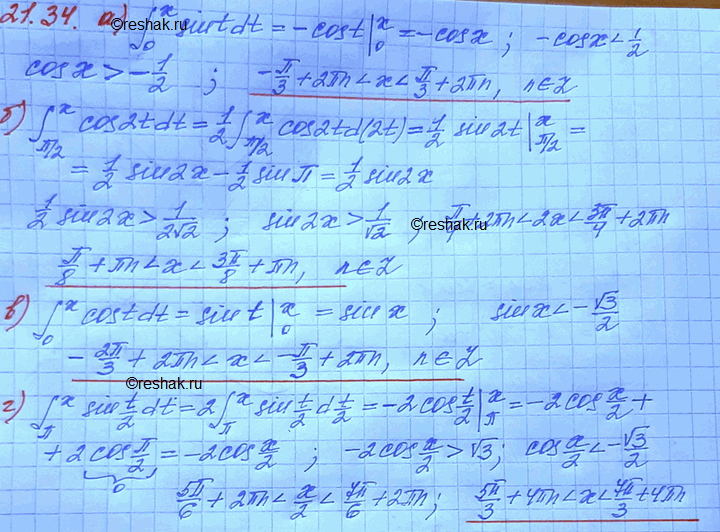 21.34. а) ∫₀ˣ sint dt = -cost |₀ˣ = -cosx ; -cosx < 1/2
©reshak.ru
cosx > -1/2 ; -π/3 + 2πn < x < π/3 + 2πn, n∈Z
б) ∫_{π/2}^x cos2t dt = 1/2 ∫_{π/2}^x cos2t d(2t) = 1/2 sin2t |_{π/2}^x =
= 1/2 sin2x - 1/2 sinπ = 1/2 sin2x
1/2 sin2x > 1/(2√2) ; sin2x > 1/√2 ; π/4 + 2πn < 2x < 3π/4 + 2πn
©reshak.ru
π/8 + πn < x < 3π/8 + πn, n∈Z
в) ∫₀ˣ cost dt = sint |₀ˣ = sinx ; sinx < -√3/2
-2π/3 + 2πn < x < -π/3 + 2πn, n∈Z
©reshak.ru
г) ∫_π^x sin t/2 dt = 2 ∫_π^x sin t/2 d t/2 = -2cos t/2 |_π^x = -2cos x/2 +
+ 2cos π/2 = -2cos x/2 ; -2cos x/2 > √3 ; cos x/2 < -√3/2
0
5π/6 + 2πn < x/2 < 7π/6 + 2πn ; 5π/3 + 4πn < x < 4π/3 + 4πn